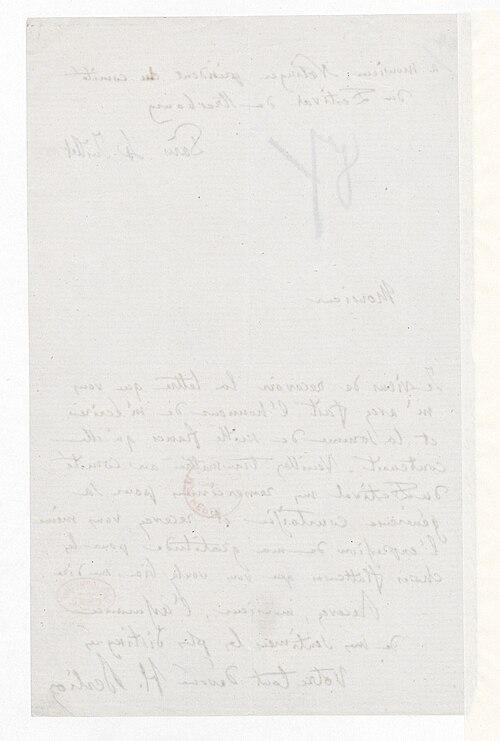 à monsieur président du comité
du Festival de Strasbourg
Paris 4 Juillet
Monsieur
Je viens de recevoir la lettre que vous
m'avez fait l'honneur de m'écrire
et la somme de mille francs qu'elle
contenait. Veuillez transmettre au comité
du Festival mes remerciements pour sa
généreuse courtoisie et recevez vous même
l'expression de ma gratitude pour les
choses flatteuses que vous voulez bien me dire
Recevez, monsieur, l'assurance
de mes sentiments les plus distingués
Votre tout dévoué H. Berlioz